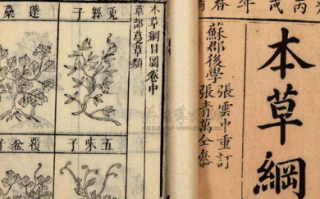 本草綱
蘇郡後學
張雲中重訂
張青萬仝參
本草綱目圖卷中
草部蔓草類
菟絲子
蓬蘽
五味子
覆盆子